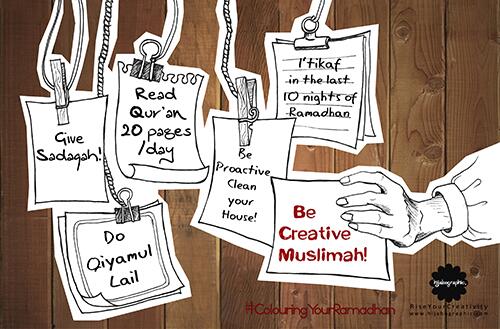 Give
Sadaqah!
Read
Qur'an
20 pages
/day
I'tikaf
in the last
10 nights of
Ramadhan
Be
Proactive
Clean
your
House!
Do
Qiyamul
Lail
Be
Creative
Muslimah!
#ColouringYourRamadhan
hijabographic.
RiseYourCreativity
www.hijabographic.com